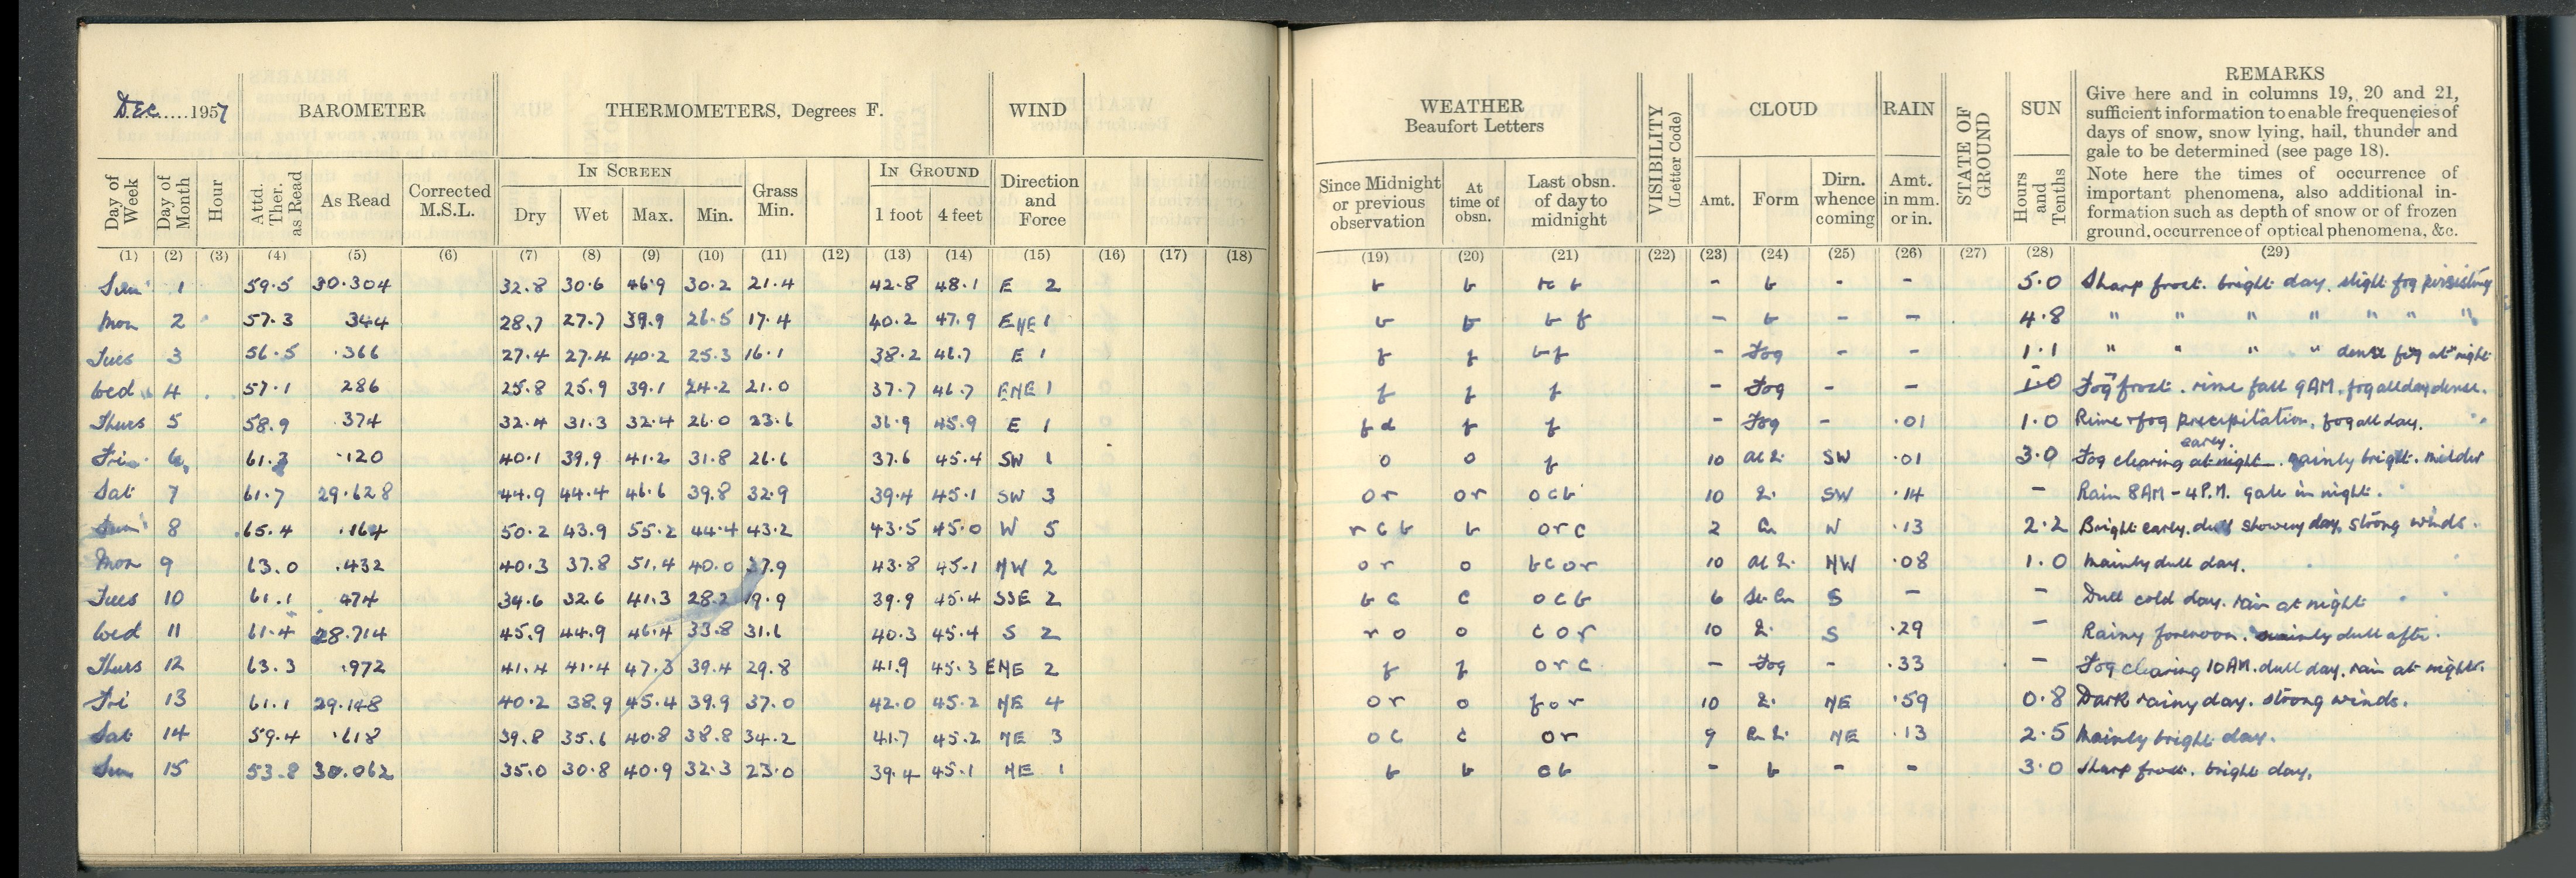 DEC.....1957 BAROMETER THERMOMETERS, Degrees F. WIND
Day of Week Day of Month Hour Attd. Ther. as Read As Read Corrected M.S.L. IN SCREEN Dry Wet Max. Min. Grass Min. IN GROUND 1 foot 4 feet Direction and Force
(1) (2) (3) (4) (5) (6) (7) (8) (9) (10) (11) (12) (13) (14) (15) (16) (17) (18)
Sun 1 59.5 30.304 32.8 30.6 46.9 30.2 21.4 42.8 48.1 E 2
Mon 2 57.3 344 28.7 27.7 39.9 26.5 17.4 40.2 47.9 ENE 1
Tues 3 56.5 .366 27.4 27.4 40.2 25.3 16.1 38.2 46.7 E 1
Wed 4 57.1 286 25.8 25.9 39.1 24.2 21.0 37.7 46.7 ENE 1
Thurs 5 58.9 .374 32.4 31.3 32.4 26.0 23.6 36.9 45.9 E 1
Fri 6 61.3 .120 40.1 39.9 41.2 31.8 26.6 37.6 45.4 SW 1
Sat 7 61.7 29.628 44.9 44.4 46.6 39.8 32.9 39.4 45.1 SW 3
Sun 8 65.4 .164 50.2 43.9 55.2 44.4 43.2 43.5 45.0 W 5
Mon 9 63.0 .432 40.3 37.8 51.4 40.0 37.9 43.8 45.1 NW 2
Tues 10 61.1 .474 34.6 32.6 41.3 28.2 19.9 39.9 45.4 SSE 2
Wed 11 61.4 28.714 45.9 44.9 46.4 33.8 31.6 40.3 45.4 S 2
Thurs 12 63.3 .972 41.4 41.4 47.3 39.4 29.8 41.9 45.3 ENE 2
Fri 13 61.1 29.148 40.2 38.9 45.4 39.9 37.0 42.0 45.2 NE 4
Sat 14 59.4 .618 39.8 35.6 40.8 38.8 34.2 41.7 45.2 NE 3
Sun 15 53.8 30.062 35.0 30.8 40.9 32.3 23.0 39.4 45.1 NE 1
WEATHER
Beaufort Letters
VISIBILITY (Letter Code) CLOUD RAIN STATE OF GROUND SUN
REMARKS
Give here and in columns 19, 20 and 21,
sufficient information to enable frequencies of
days of snow, snow lying, hail, thunder and
gale to be determined (see page 18).
Note here the times of occurrence of
important phenomena, also additional in-
formation such as depth of snow or of frozen
ground, occurrence of optical phenomena, &c.
Since Midnight or previous observation At time of obsn. Last obsn. of day to midnight Amt. Form Dirn. whence coming Amt. in mm. or in. Hours and Tenths
(19) (20) (21) (22) (23) (24) (25) (26) (27) (28) (29)
b b b - b - - 5.0 Sharp frost. bright day. slight fog persisting
b b b f - b - - 4.8 " " " " " " "
f f bf - Fog - - 1.1 " " " " dense fog at night
f f f - Fog - - 1.0 Fog frost. rime fall 9AM. fog all day dense.
f d f f - Fog - .01 1.0 Rime & fog precipitation. fog all day.
o o f 10 SW .01 3.0 Fog clearing at night early. mainly bright. milder
or or ocb 10 SW .14 - Rain 8AM - 4P.M. gale in night.
r c b b orc 2 Cu W .13 2.2 Bright early. dull showery day, strong winds.
or o bcor 10 NW .08 1.0 Mainly dull day.
bc c ocb 6 St Cu S - - Dull cold day. rain at night
r o o cor 10 S .29 - Rainy forenoon. mainly dull after.
f f orc - Fog - .33 - Fog clearing 10AM. dull day. rain at night.
or o for 10 NE .59 0.8 Dark rainy day. strong winds.
oc c or 9 NE .13 2.5 Mainly bright day.
b b cb - b - - 3.0 Sharp frost. bright day.